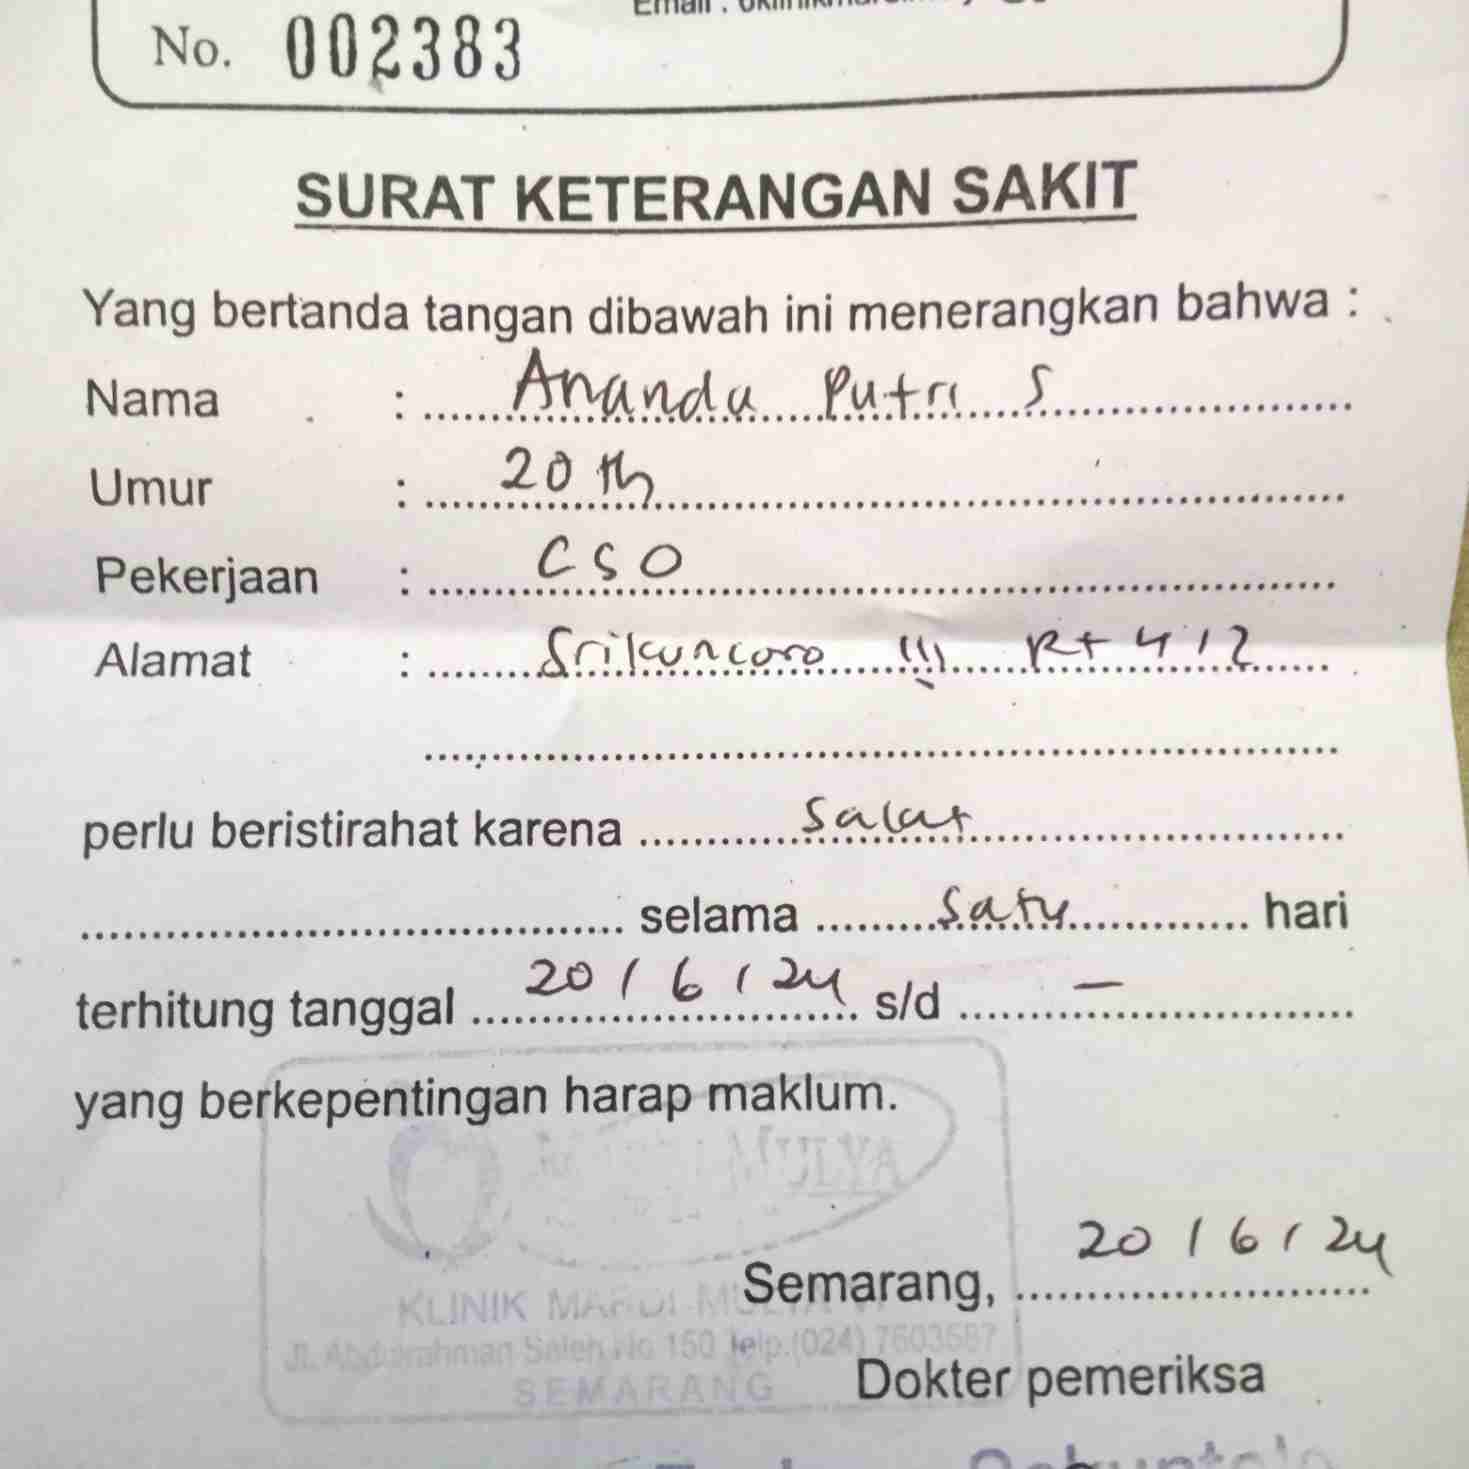 No. 002383
SURAT KETERANGAN SAKIT
Yang bertanda tangan dibawah ini menerangkan bahwa :
Nama : Ananda Putri S
Umur : 20 th
Pekerjaan : CSO
Alamat : Srikuncoro III Rt 4 / 2
perlu beristirahat karena Sakit
selama Satu hari
terhitung tanggal 20 / 6 / 24 s/d -
yang berkepentingan harap maklum.
MULYA
Semarang, 20 / 6 / 24
KLINIK MARDI MULYA
Jl. Abdulrahman Saleh No 150 Telp.(024) 7603587
SEMARANG
Dokter pemeriksa